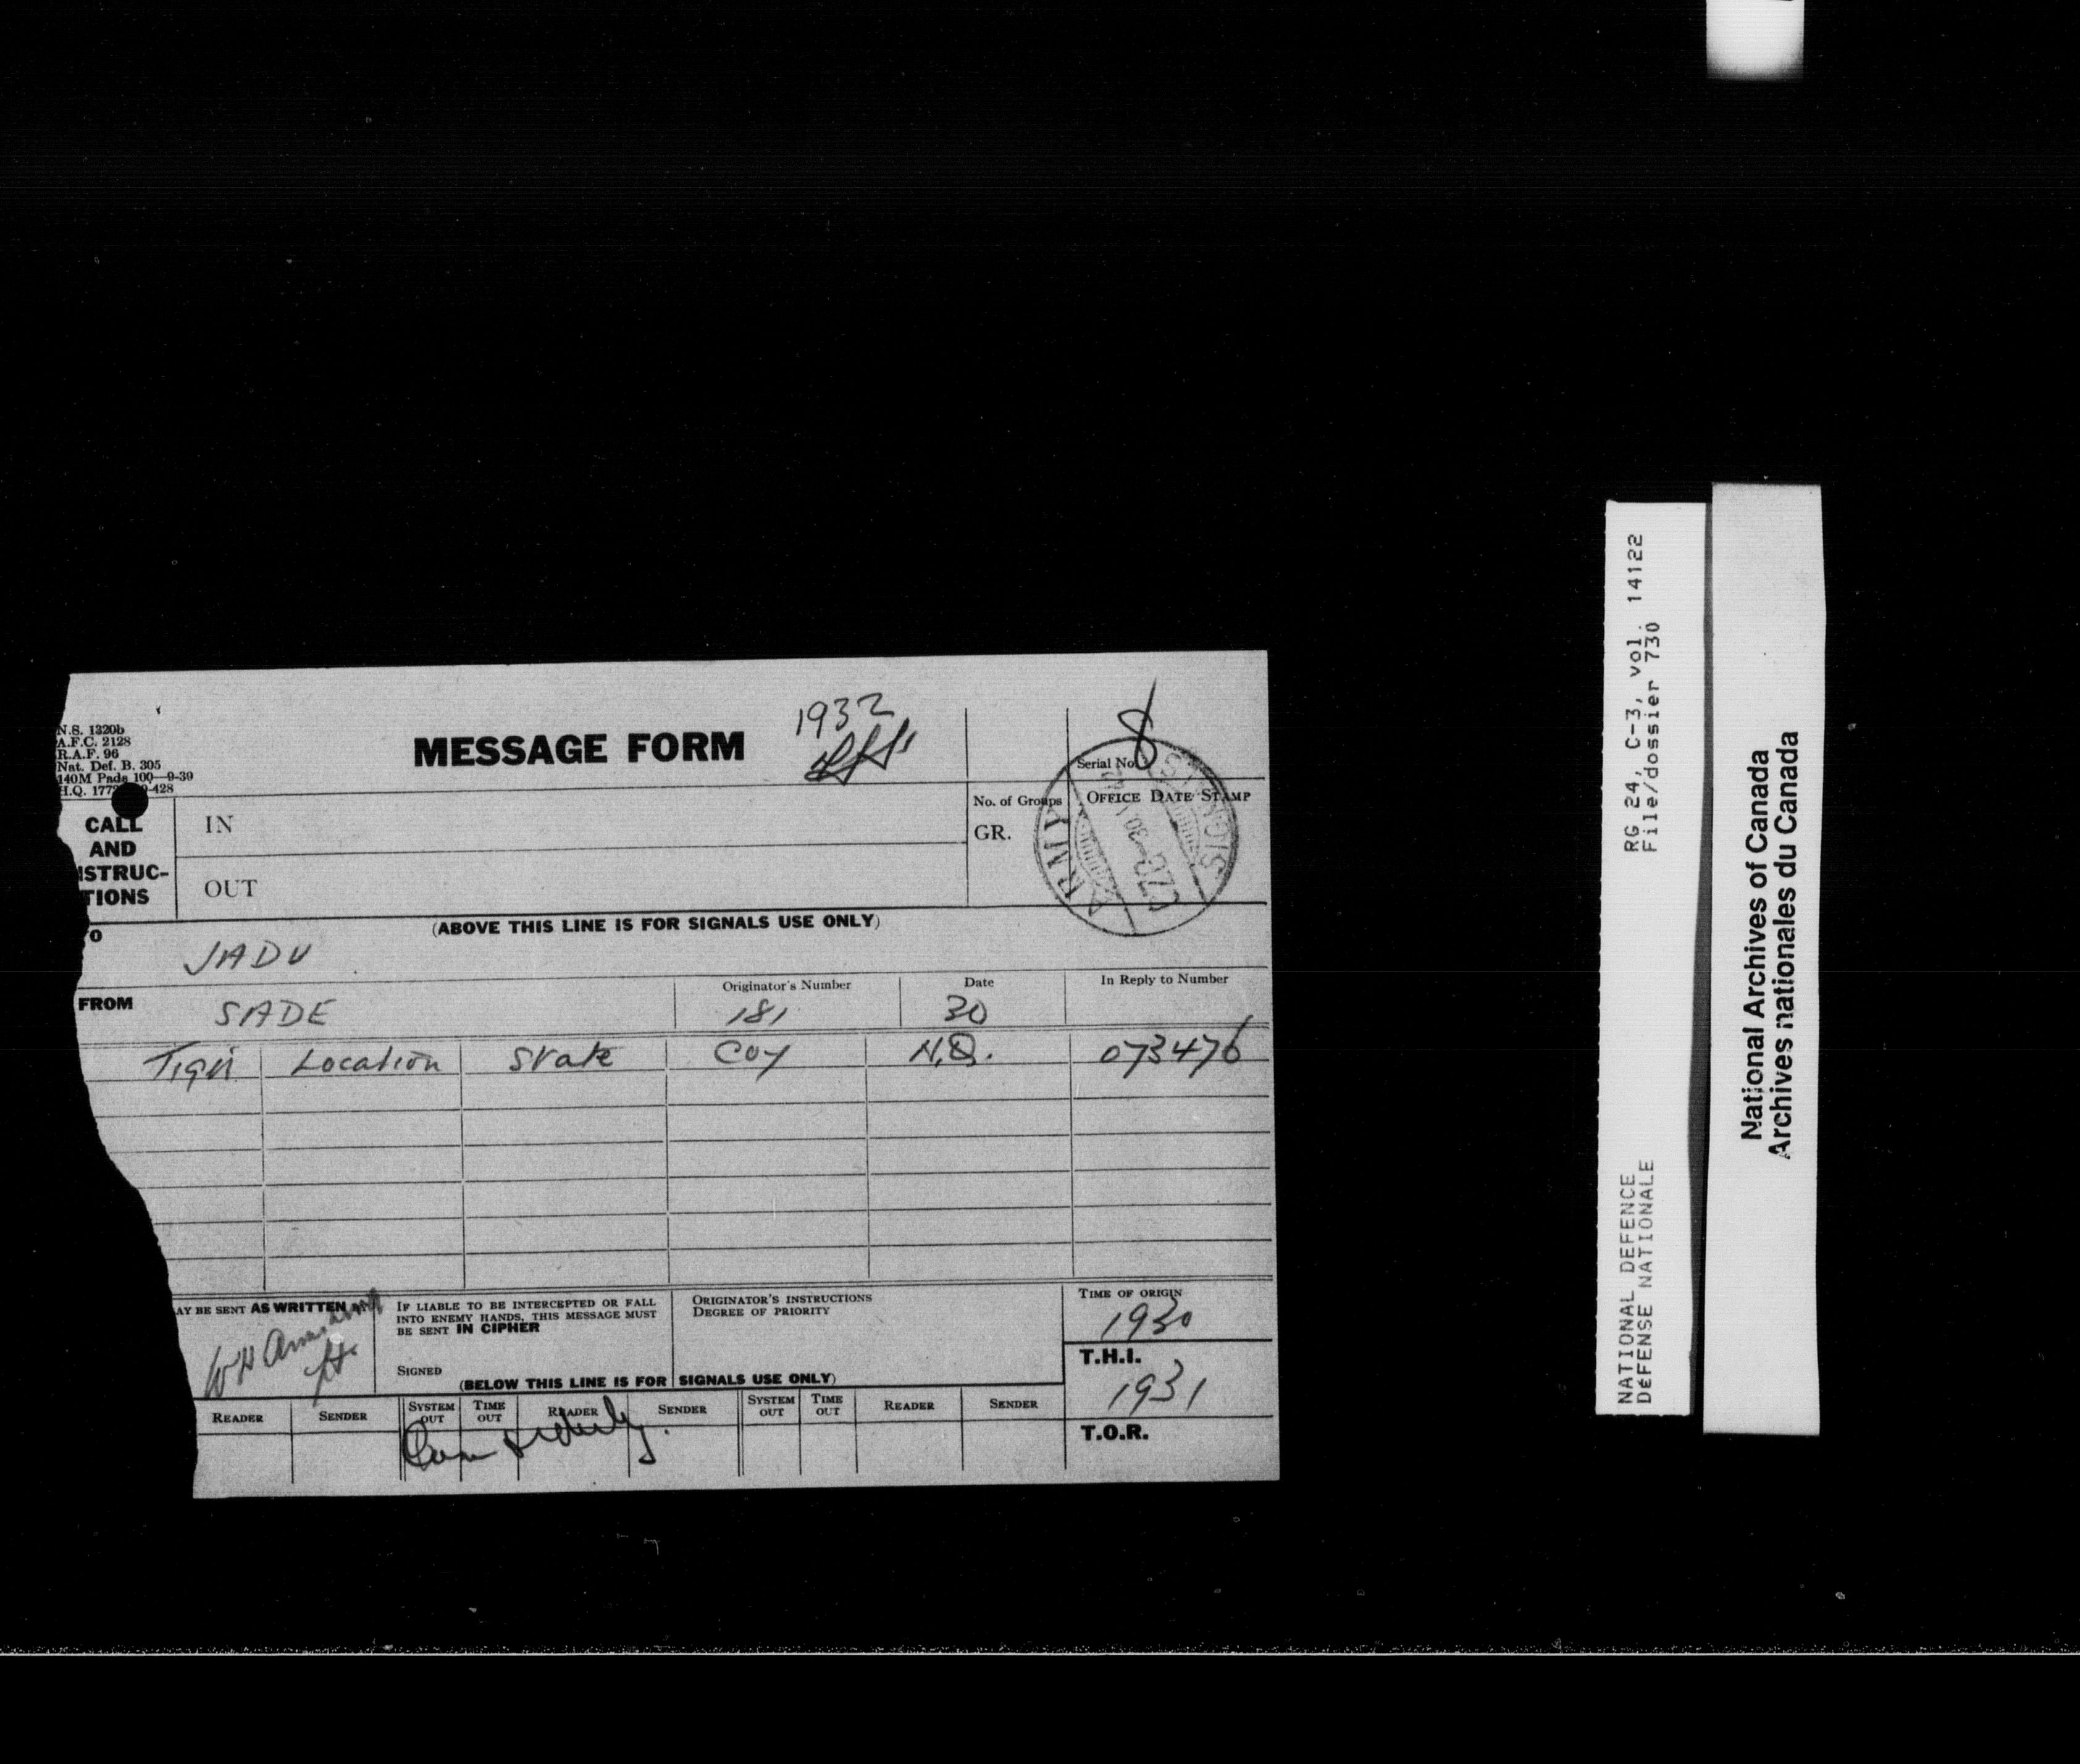 N.S. 1320b
A.F.C. 2128
R.A.F. 96
Nat. Def. B. 305
140M Pads 100—9-39
H.Q. 1772 -428
MESSAGE FORM
1932
8
Serial No.
CALL
AND
ISTRUC-
TIONS
IN
OUT
No. of Groups
GR.
OFFICE DATE STAMP
ARMY
SIGNALS
CZB—30
(ABOVE THIS LINE IS FOR SIGNALS USE ONLY)
O
JADU
FROM
SADE
Originator's Number
181
Date
30
In Reply to Number
Location State COY H.Q. 073476
AY BE SENT AS WRITTEN
W H
Lt.
IF LIABLE TO BE INTERCEPTED OR FALL
INTO ENEMY HANDS, THIS MESSAGE MUST
BE SENT IN CIPHER
SIGNED
ORIGINATOR'S INSTRUCTIONS
DEGREE OF PRIORITY
TIME OF ORIGIN
1930
T.H.I.
1931
T.O.R.
(BELOW THIS LINE IS FOR SIGNALS USE ONLY)
READER SENDER SYSTEM OUT TIME OUT READER SENDER SYSTEM OUT TIME OUT READER SENDER
RG 24, C-3, vol. 14122
File/dossier 730
NATIONAL DEFENCE
DÉFENSE NATIONALE
National Archives of Canada
Archives nationales du Canada